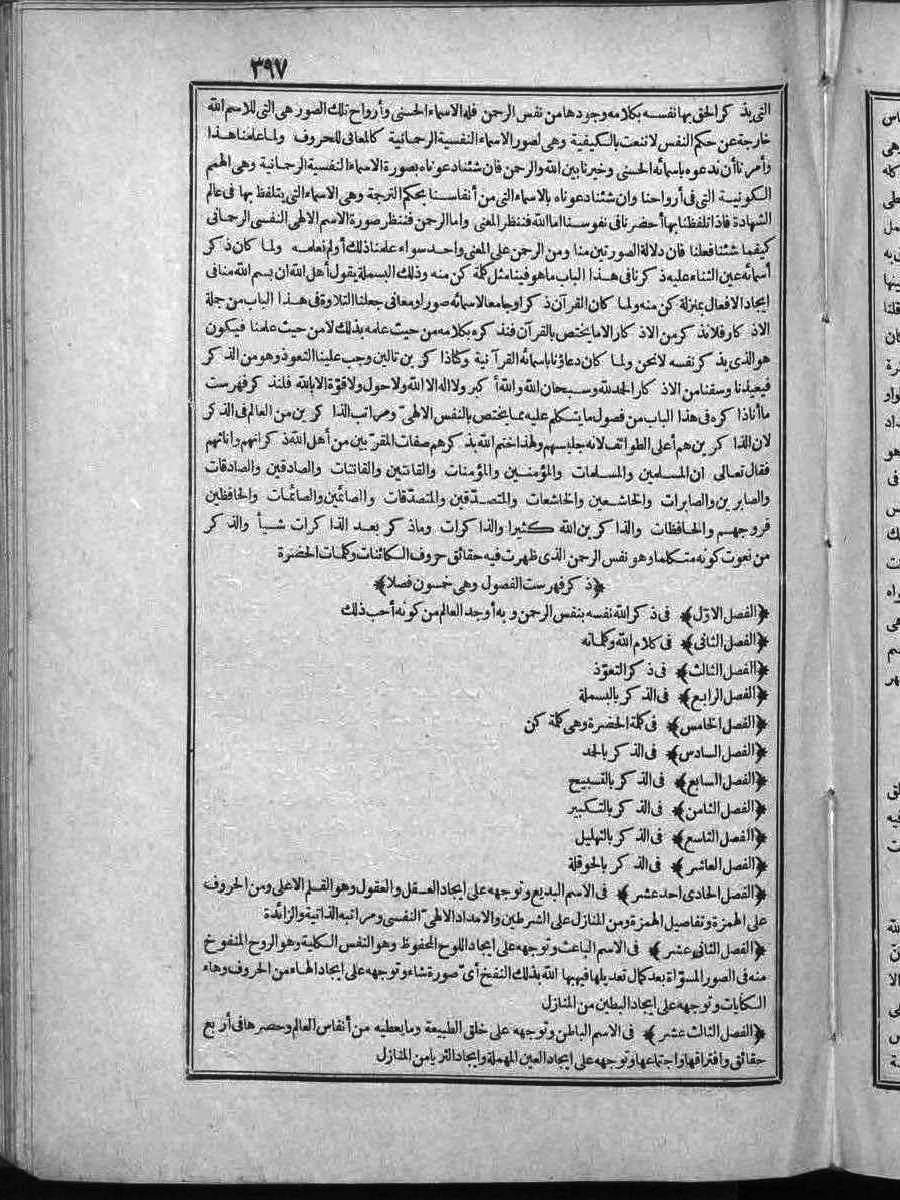 ٣٩٧
التى يذكر الحق بها نفسه بكلامه وجودها من نفس الرحمن فله الاسماء الحسنى وأرواح تلك الصور هى التى للاسم الله
خارجة عن حكم النفس لا تنعت بالكيفية وهى لصور الاسماء النفسية الرحمانية كالمعانى للحروف ولما علمنا هذا
وأمرنا أن ندعوه بأسمائه الحسنى وخيرنا بين الله والرحمن فان شئنا دعوناه بصورة الاسماء النفسية الرحمانية وهى الهمم
الكونية التى فى أرواحنا وان شئنا دعوناه بالاسماء التى من أنفاسنا بحكم الترجمة وهى الاسماء التى يتلفظ بها فى عالم
الشهادة فاذا تلفظنا بها أحضرنا فى نفوسنا اما الله فننظر المعنى واما الرحمن فننظر صورة الاسم الالهى النفسى الرحمانى
كيفما شئنا فعلنا فان دلالة الصورتين منا ومن الرحمن على المعنى واحد سواء علمنا ذلك أولم نعلمه ولما كان ذكر
أسمائه عين الثناء عليه ذكرنا فى هذا الباب ما هو فينا مثل كلمة كن منه وذلك البسملة يقول أهل الله ان بسم الله منا فى
ايجاد الافعال بمنزلة كن منه ولما كان القرآن ذكرا وجامعا لاسمائه صورا ومعانى جعلنا التلاوة فى هذا الباب من جملة
الاذكار فلا نذكر من الاذكار الا ما يختص بالقرآن فنذكره بكلامه من حيث علمه بذلك لا من حيث علمنا فيكون
هو الذى يذكر نفسه لا نحن ولما كان دعاؤنا بأسمائه القرآنية وكنا ذاكرين تالين وجب علينا التعوذ وهو من الذكر
فيعيذنا وسقنا من الاذكار الحمد لله وسبحان الله والله أكبر ولا اله الا الله ولا حول ولا قوة الا بالله فلنذكر فهرست
ما أنا ذاكره فى هذا الباب من فصول ما يتكلم عليه مما يختص بالنفس الالهىّ ومراتب الذاكرين من العالم فى الذكر
لان الذاكرين هم أعلى الطوائف لانه جليسهم ولهذا ختم الله بذكرهم صفات المقرّبين من أهل الله ذكرانهم واناثهم
فقال تعالى ان المسلمين والمسلمات والمؤمنين والمؤمنات والقانتين والقانتات والصادقين والصادقات
والصابرين والصابرات والخاشعين والخاشعات والمتصدّقين والمتصدّقات والصائمين والصائمات والحافظين
فروجهم والحافظات والذاكرين الله كثيرا والذاكرات وما ذكر بعد الذاكرات شيأ والذكر
من نعوت كونه متكلما وهو نفس الرحمن الذى ظهرت فيه حقائق حروف الكائنات وكلمات الحضرة
﴿ذكر فهرست الفصول وهى خمسون فصلا﴾
﴿الفصل الاوّل﴾ فى ذكر الله نفسه بنفس الرحمن وبه أوجد العالم من كونه أحب ذلك
﴿الفصل الثانى﴾ فى كلام الله وكلماته
﴿الفصل الثالث﴾ فى ذكر التعوّذ
﴿الفصل الرابع﴾ فى الذكر بالبسملة
﴿الفصل الخامس﴾ فى كلمة الحضرة وهى كلمة كن
﴿الفصل السادس﴾ فى الذكر بالحمد
﴿الفصل السابع﴾ فى الذكر بالتسبيح
﴿الفصل الثامن﴾ فى الذكر بالتكبير
﴿الفصل التاسع﴾ فى الذكر بالتهليل
﴿الفصل العاشر﴾ فى الذكر بالحوقلة
﴿الفصل الحادى احد عشر﴾ فى الاسم البديع وتوجهه على ايجاد العقل والعقول وهو القلم الاعلى ومن الحروف
على الهمزة وتفاصيل الهمزة ومن المنازل على الشرطين والامداد الالهىّ النفسى ومراتبه الذاتية والزائدة
﴿الفصل الثانى عشر﴾ فى الاسم الباعث وتوجهه على ايجاد اللوح المحفوظ وهو النفس الكلية وهو الروح المنفوخ
منه فى الصور المسوّاة بعد كمال تعديلها فيهبها الله بذلك النفخ أىّ صورة شاء وتوجهه على ايجاد الهاء من الحروف وهاء
الكنايات وتوجهه على ايجاد البطين من المنازل
﴿الفصل الثالث عشر﴾ فى الاسم الباطن وتوجهه على خلق الطبيعة وما يعطيه من أنفاس العالم وحصرها فى أربع
حقائق وافتراقها واجتماعها وتوجهه على ايجاد العين المهملة وايجاد الثريا من المنازل